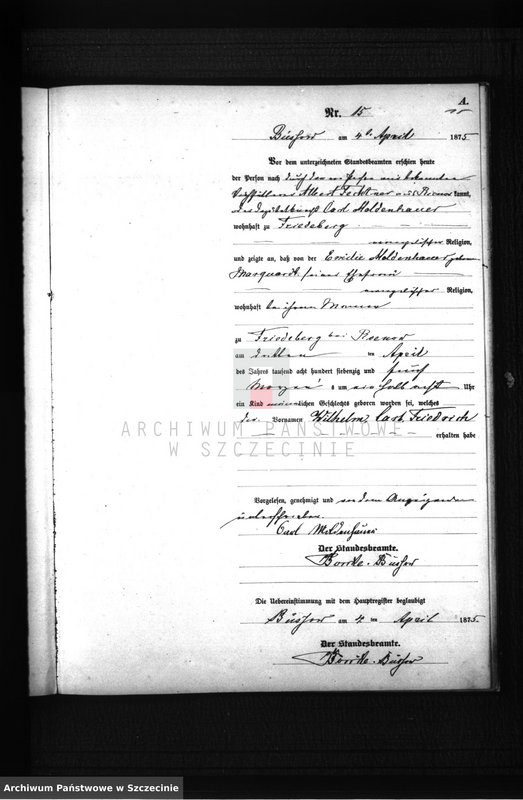 A.
Nr. 15
Büssow am 4. April 1875
Vor dem unterzeichneten Standesbeamten erschien heute
der Person nach durch den
Albert aus kannt,
Carl Moldenhauer
wohnhaft zu Friedeberg
evangelischer Religion,
und zeigte an, daß von der Emilie Moldenhauer geborne
Marquardt seiner Ehefrau
evangelischer Religion,
wohnhaft bei ihrem Manne
zu Friedeberg bei
am dritten ten April
des Jahres tausend acht hundert siebenzig und fünf
Morgens um ein halb acht Uhr
ein Kind männlichen Geschlechts geboren worden sei, welches
die Vornamen Wilhelm, Carl Friedrich
erhalten habe
ARCHIWUM PAŃSTWOWE
W SZCZECINIE
Vorgelesen, genehmigt und von dem Anzeigenden
unterschrieben
Carl Moldenhauer
Der Standesbeamte.
Borcke-Büssow
Die Uebereinstimmung mit dem Hauptregister beglaubigt
Büssow am 4. ten April 1875.
Der Standesbeamte.
Borcke-Büssow
Archiwum Państwowe w Szczecinie